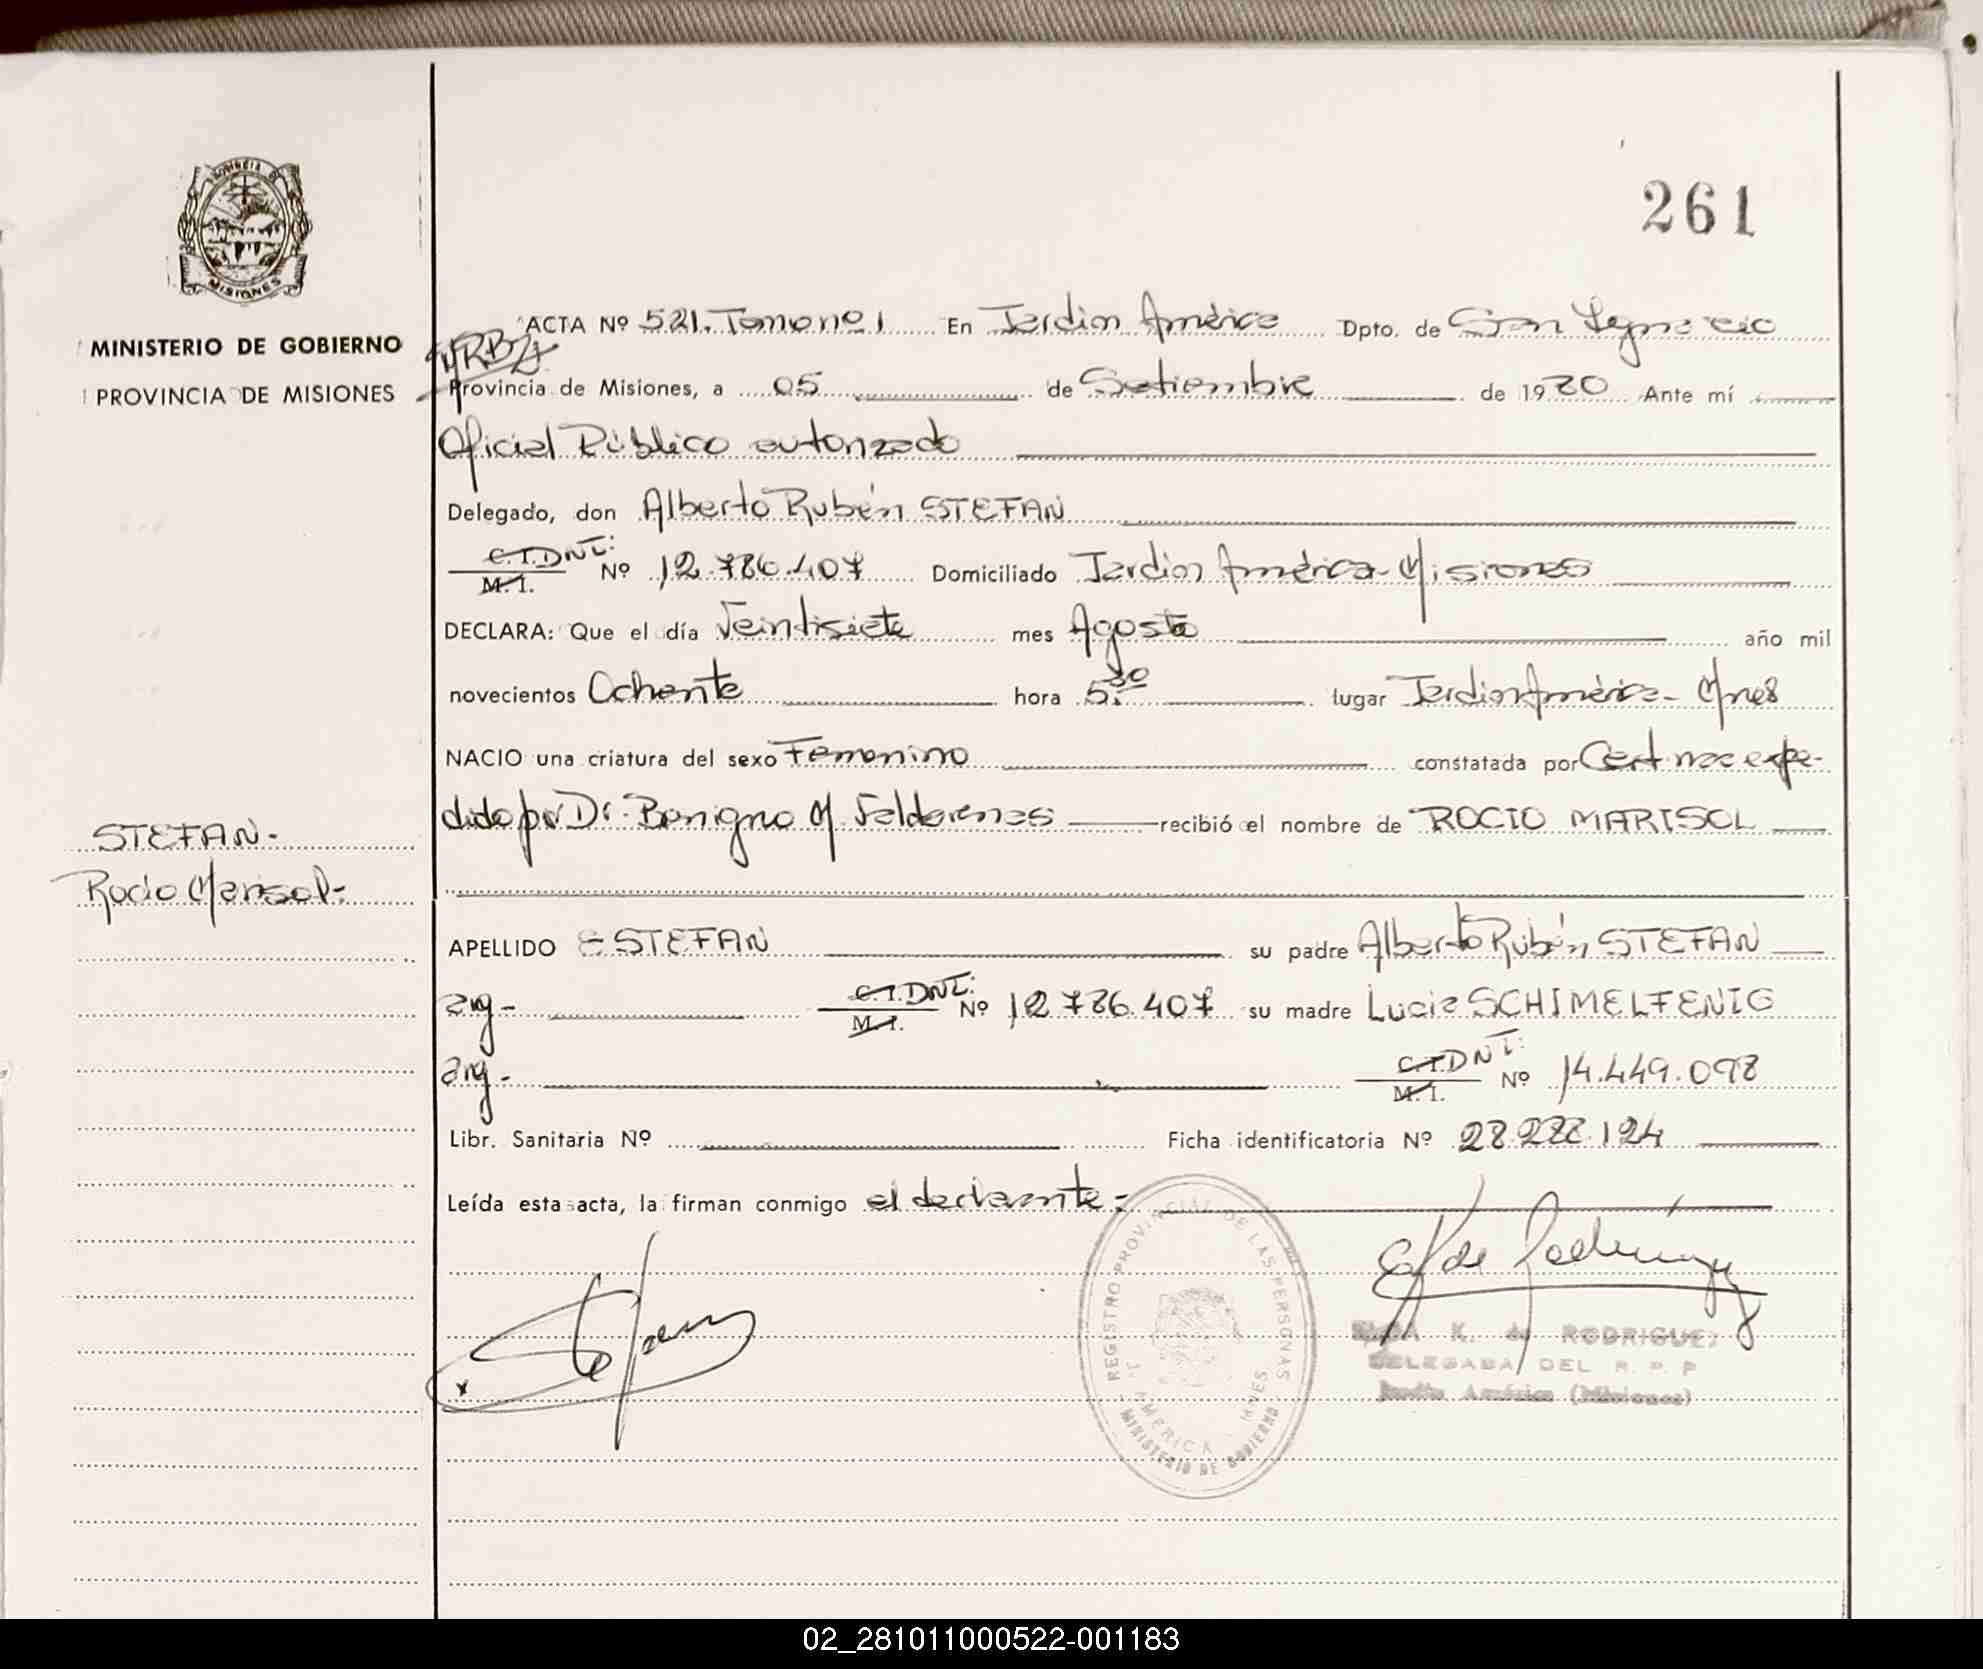 261
PROVINCIA DE
MISIONES
MINISTERIO DE GOBIERNO
PROVINCIA DE MISIONES
ACTA Nº 521. Tomo nº 1 En Jardin América Dpto. de San Ignacio
Provincia de Misiones, a 05 de Setiembre de 1980 Ante mí
Oficial Público autorizado
Delegado, don Alberto Rubén STEFAN
C.I. DNI: M.I. Nº 12.786.407 Domiciliado Jardin América - Misiones
DECLARA: Que el día Veintisiete mes Agosto año mil
novecientos Ochenta hora 5:30 lugar Jardin América - Mnes
NACIO una criatura del sexo Femenino constatada por Cert nac expe-
dido por Dr. Benigno M. Valdovenas recibió el nombre de ROCIO MARISOL
STEFAN-
Rocio Marisol-
APELLIDO STEFAN su padre Alberto Rubén STEFAN
arg- C.I. DNI: M.I. Nº 12.786.407 su madre Lucia SCHIMELFENIG
arg- C.I. DNI: M.I. Nº 14.449.098
Libr. Sanitaria Nº Ficha identificatoria Nº 28.288.124
Leída esta acta, la firman conmigo el declarante:-
REGISTRO PROVINCIAL DE LAS PERSONAS
J. AMERICA - MNES
MINISTERIO DE GOBIERNO
K. de RODRIGUEZ
DELEGADA DEL R. P. P
Jardín América (Misiones)
02_281011000522-001183